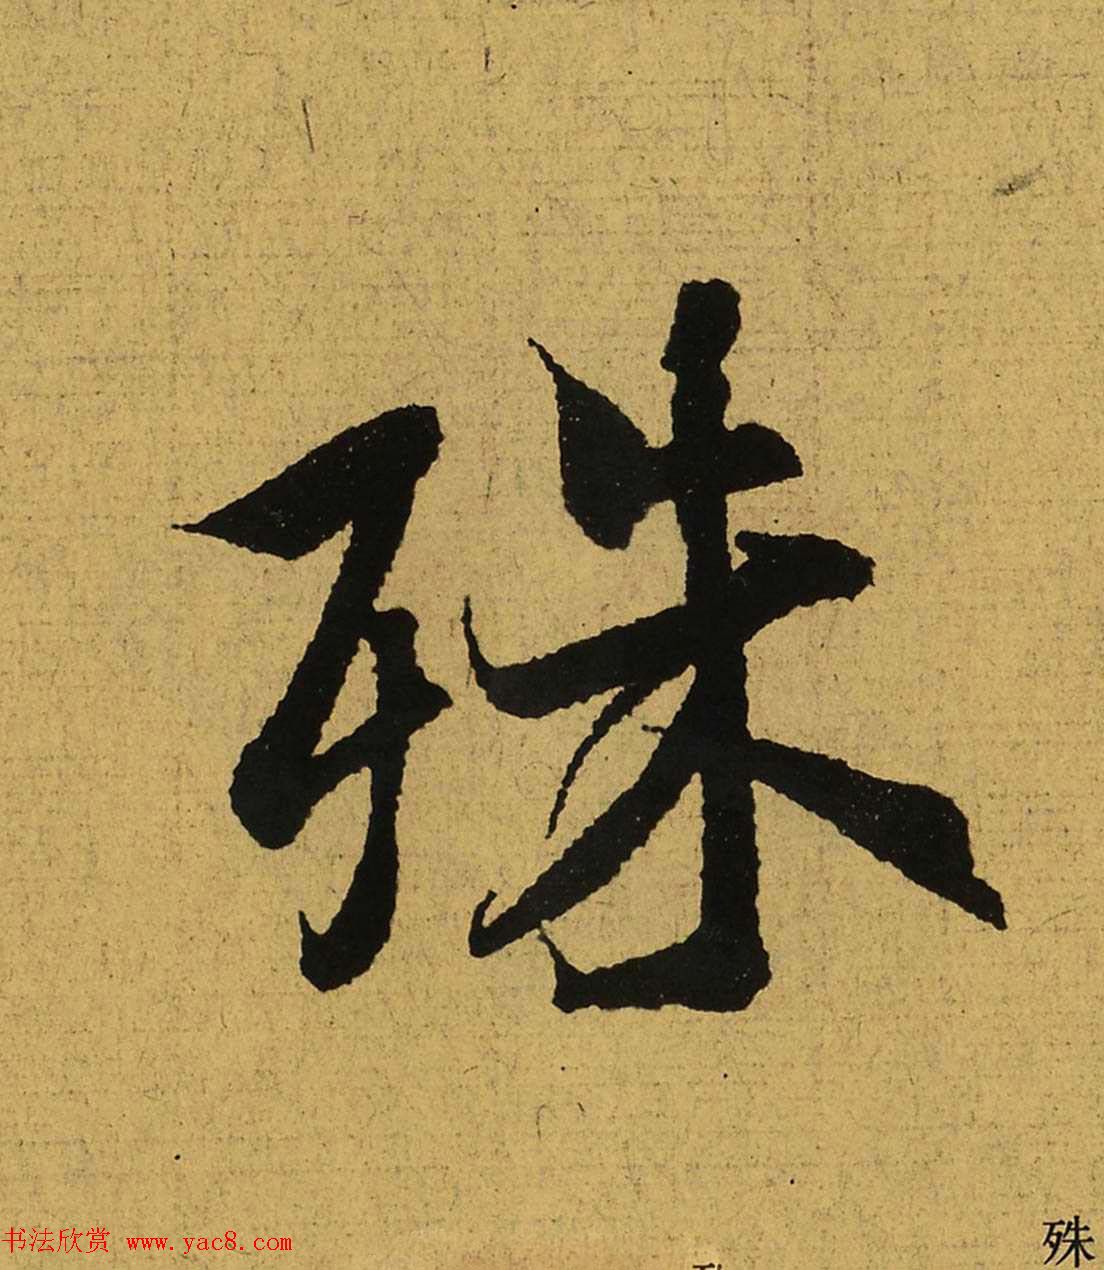 殊
书法欣赏 www.yac8.com
殊